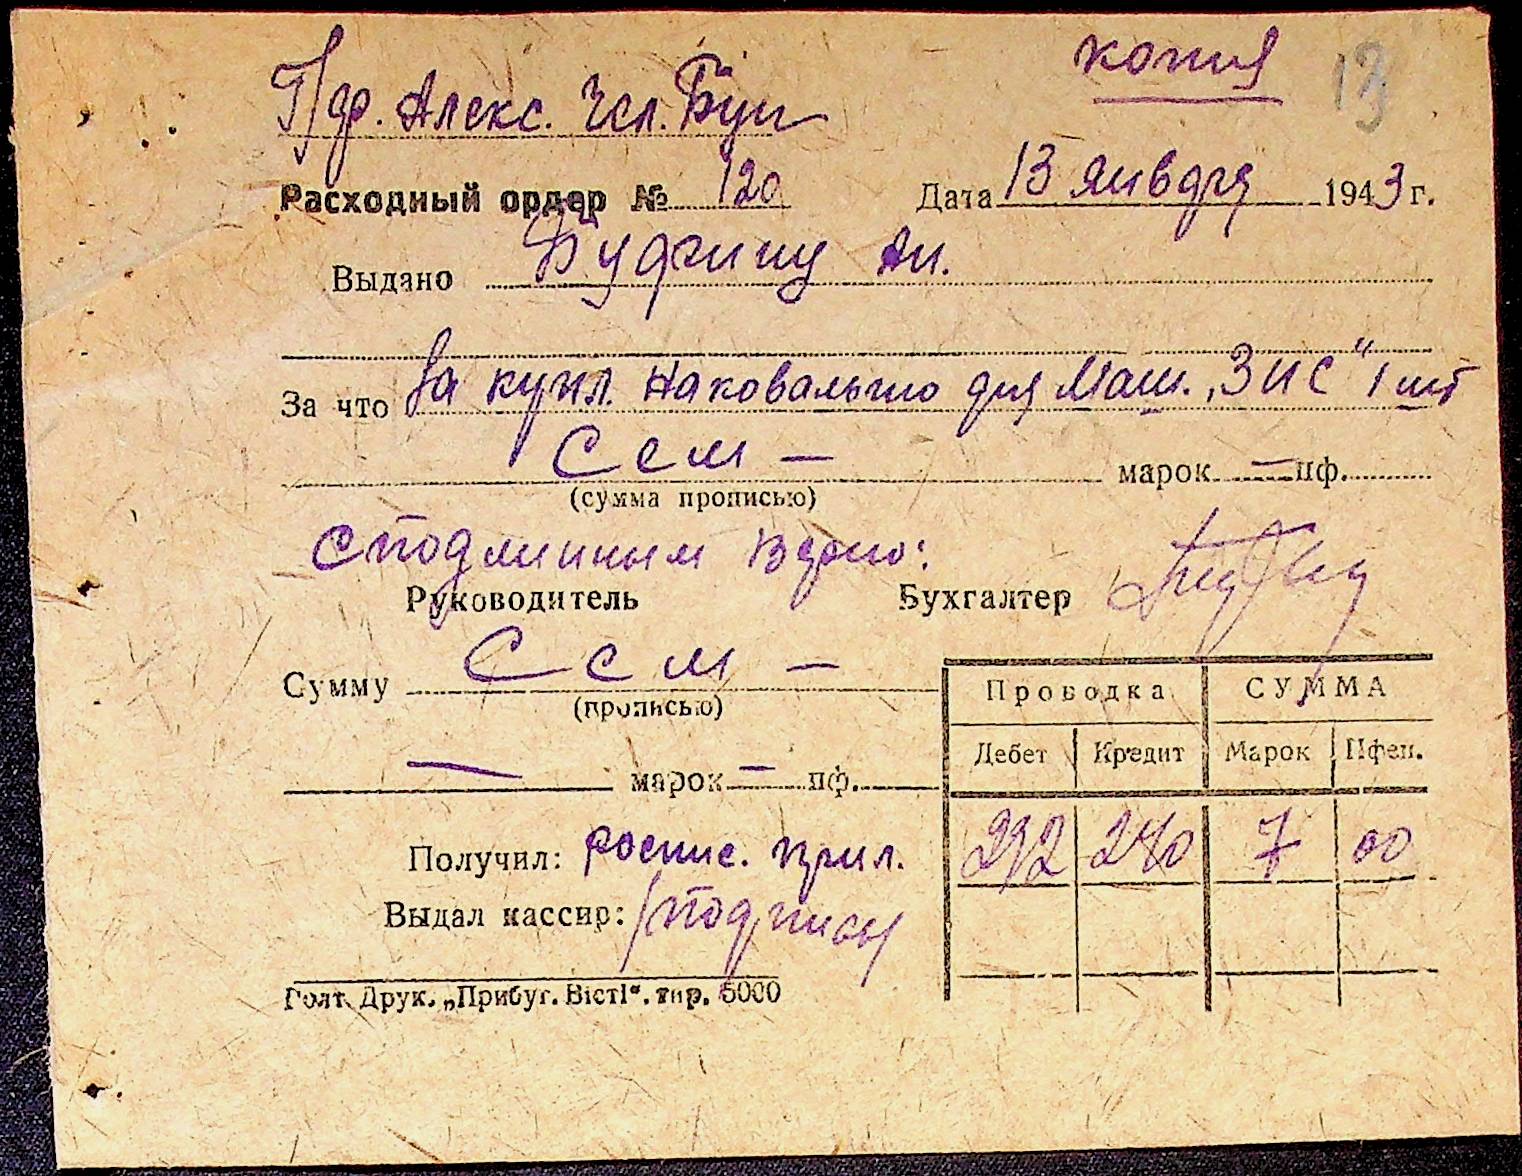 копия 13
Пдр. Алекс. Исл. Бун
Расходный ордер № 120 Дата 13 января 1943 г.
Выдано Ан.
За что За купл. наковальню для Маш. „ЗИС" 1 шт
Сем — марок — пф.
(сумма прописью)
С подлинным верно:
Руководитель Бухгалтер
Сумму Сем —
(прописью)
— марок — пф.
Проводка СУММА
Дебет Кредит Марок Пфен.
292 240 7 00
Получил: роспис. прил.
Выдал кассир: /подписи
Голт. Друк. „Прибуг. Вісті“. тир. 5000